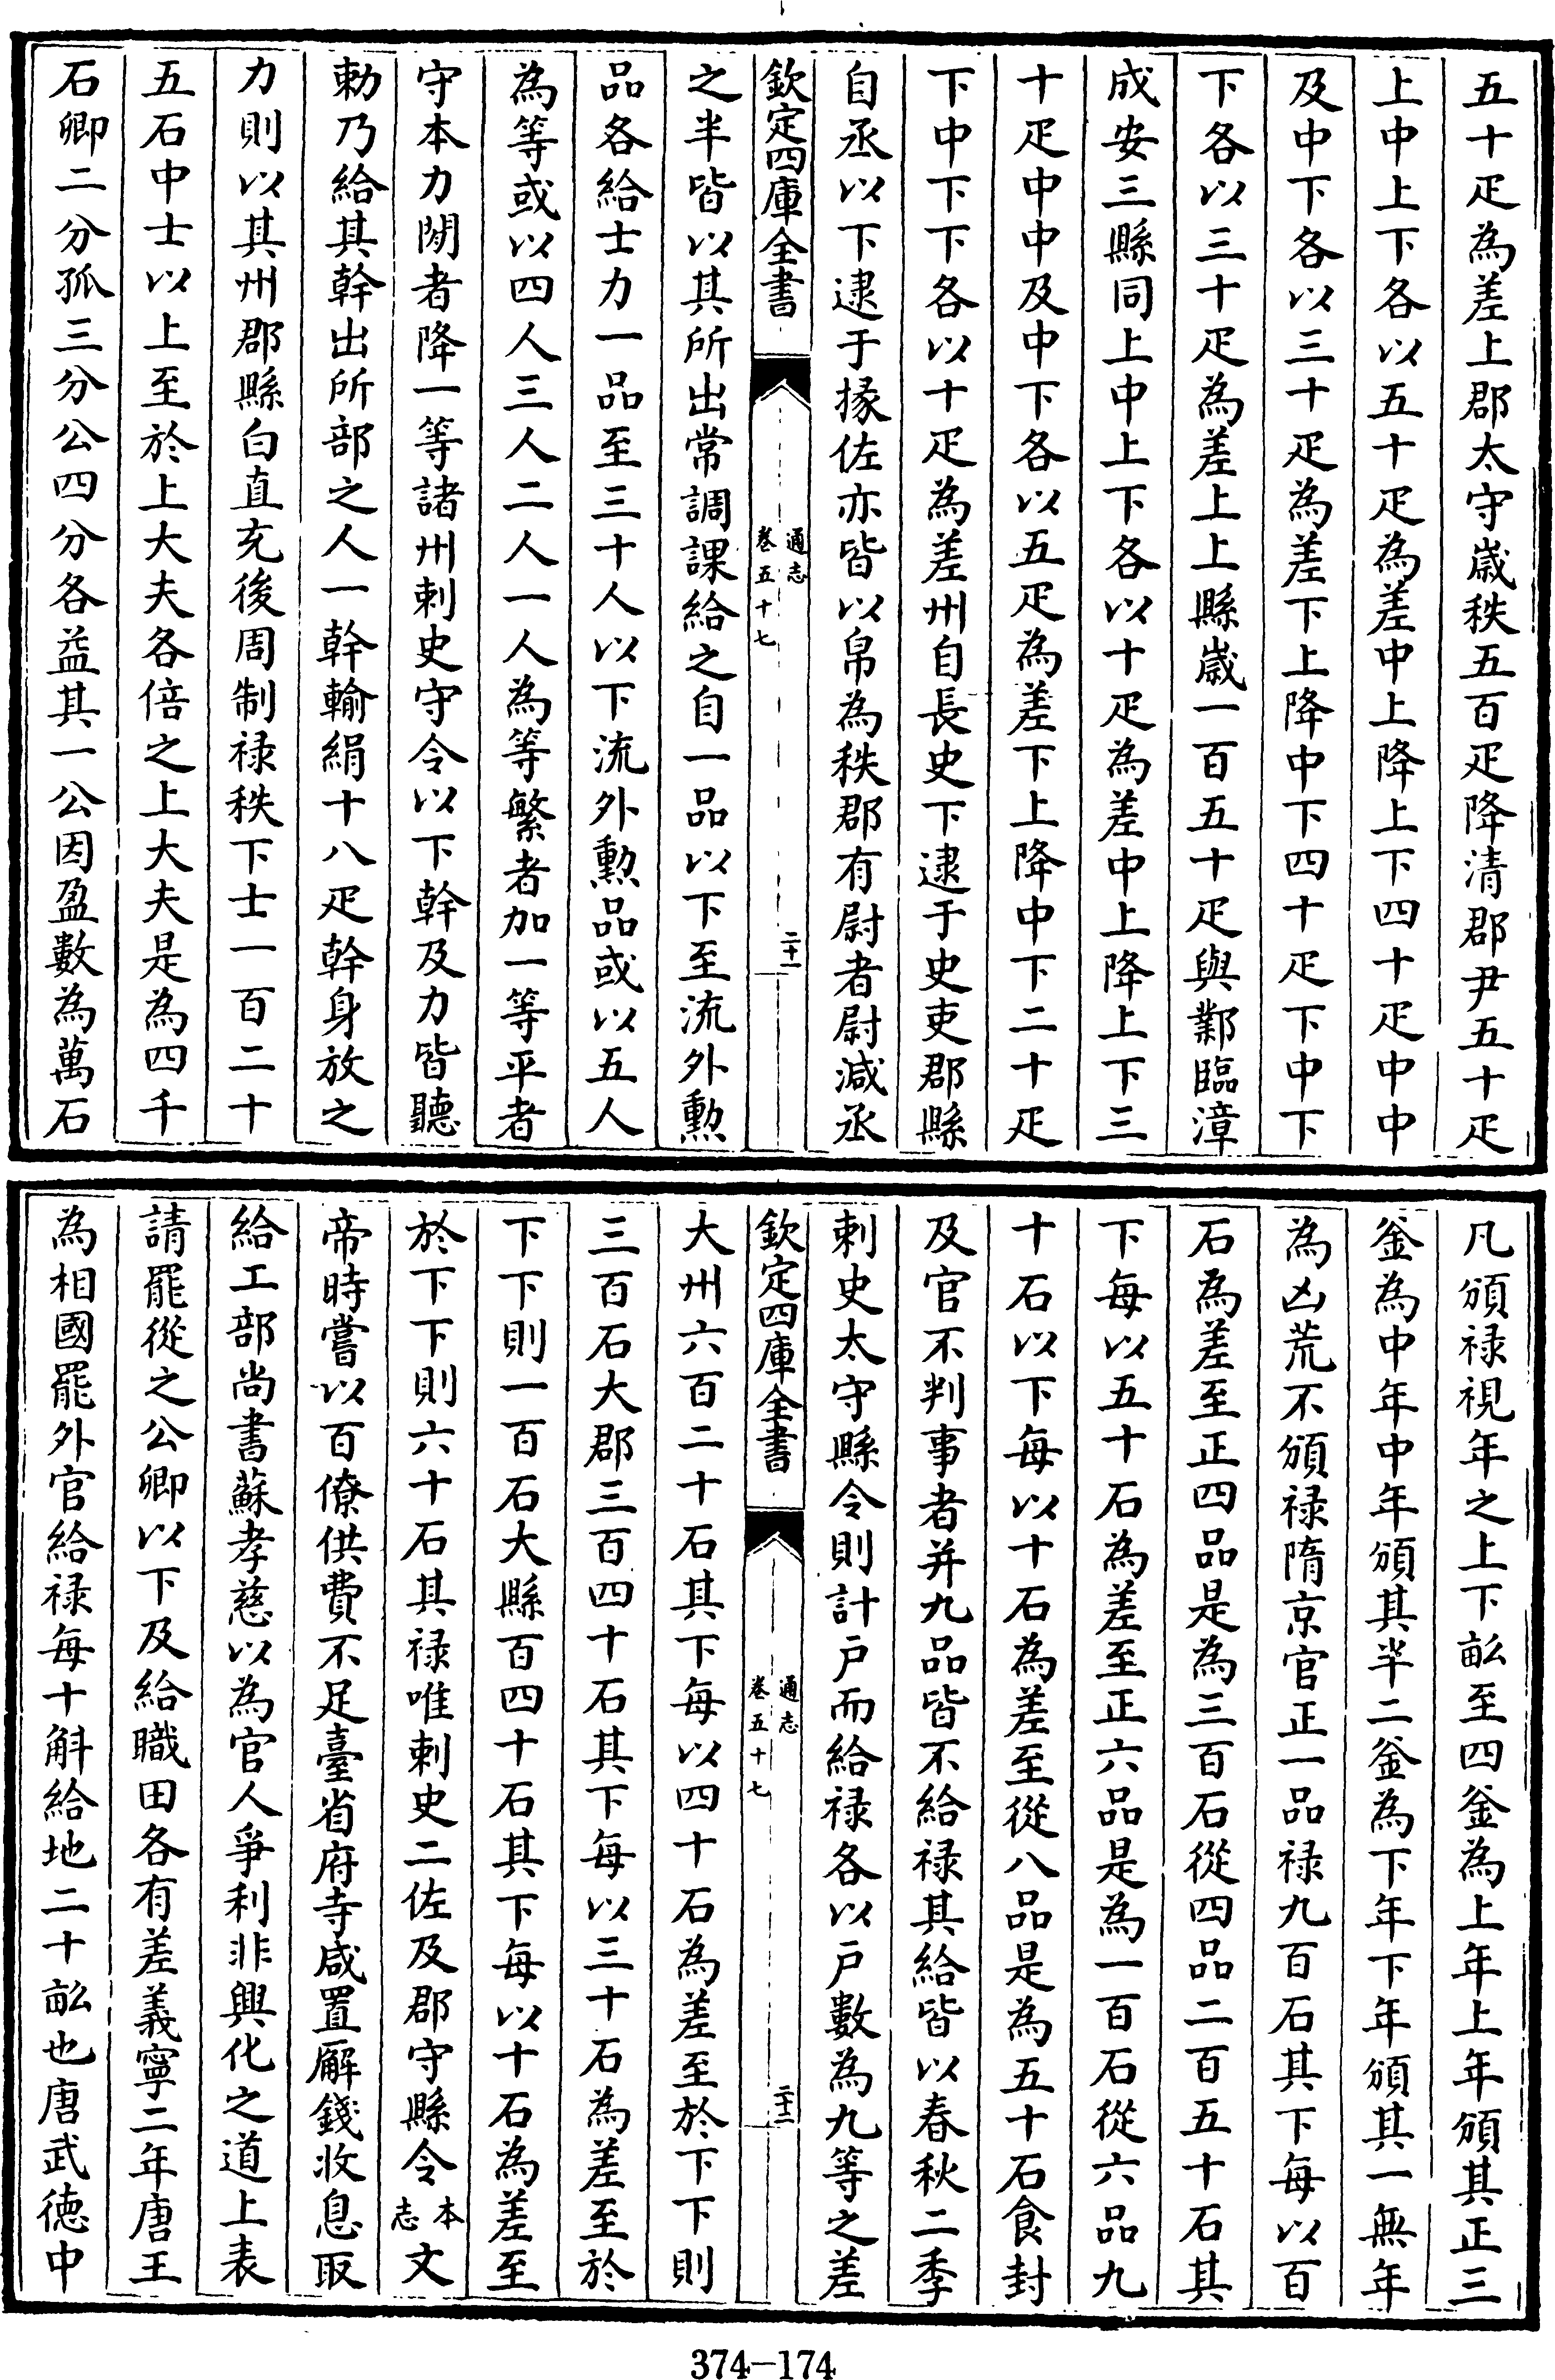 五十疋為差上郡太守嵗秩五百疋降清郡尹五十疋
上中上下各以五十疋為差中上降上下四十疋中中
及中下各以三十疋為差下上降中下四十疋下中下
下各以三十疋為差上上縣嵗一百五十疋與鄴臨漳
成安三縣同上中上下各以十疋為差中上降上下三
十疋中中及中下各以五疋為差下上降中下二十疋
下中下下各以十疋為差州自長史下逮于史吏郡縣
自丞以下逮于掾佐亦皆以帛為秩郡有尉者尉減丞
欽定四庫全書
通志
卷五十七
二十一
之半皆以其所出常調課給之自一品以下至流外勲
品各給士力一品至三十人以下流外勲品或以五人
為等或以四人三人二人一人為等繁者加一等平者
守本力閒者降一等諸州刺史守令以下幹及力皆聽
勅乃給其幹出所部之人一幹輸絹十八疋幹身放之
力則以其州郡縣白直充後周制祿秩下士一百二十
五石中士以上至於上大夫各倍之上大夫是為四千
石卿二分孤三分公四分各益其一公因盈數為萬石
凡頒祿視年之上下畝至四釜為上年上年頒其正三
釜為中年中年頒其半二釜為下年下年頒其一無年
為凶荒不頒祿隋京官正一品祿九百石其下每以百
石為差至正四品是為三百石從四品二百五十石其
下每以五十石為差至正六品是為一百石從六品九
十石以下每以十石為差至從八品是為五十石食封
及官不判事者并九品皆不給祿其給皆以春秋二季
刺史太守縣令則計戶而給祿各以戶數為九等之差
欽定四庫全書
通志
卷五十七
二十二
大州六百二十石其下每以四十石為差至於下下則
三百石大郡三百四十石其下每以三十石為差至於
下下則一百石大縣百四十石其下每以十石為差至
於下下則六十石其祿唯刺史二佐及郡守縣令本志文
帝時嘗以百僚供費不足臺省府寺咸置廨錢收息取
給工部尚書蘇孝慈以為官人爭利非興化之道上表
請罷從之公卿以下及給職田各有差義寧二年唐王
為相國罷外官給祿每十斛給地二十畝也唐武德中
374-174